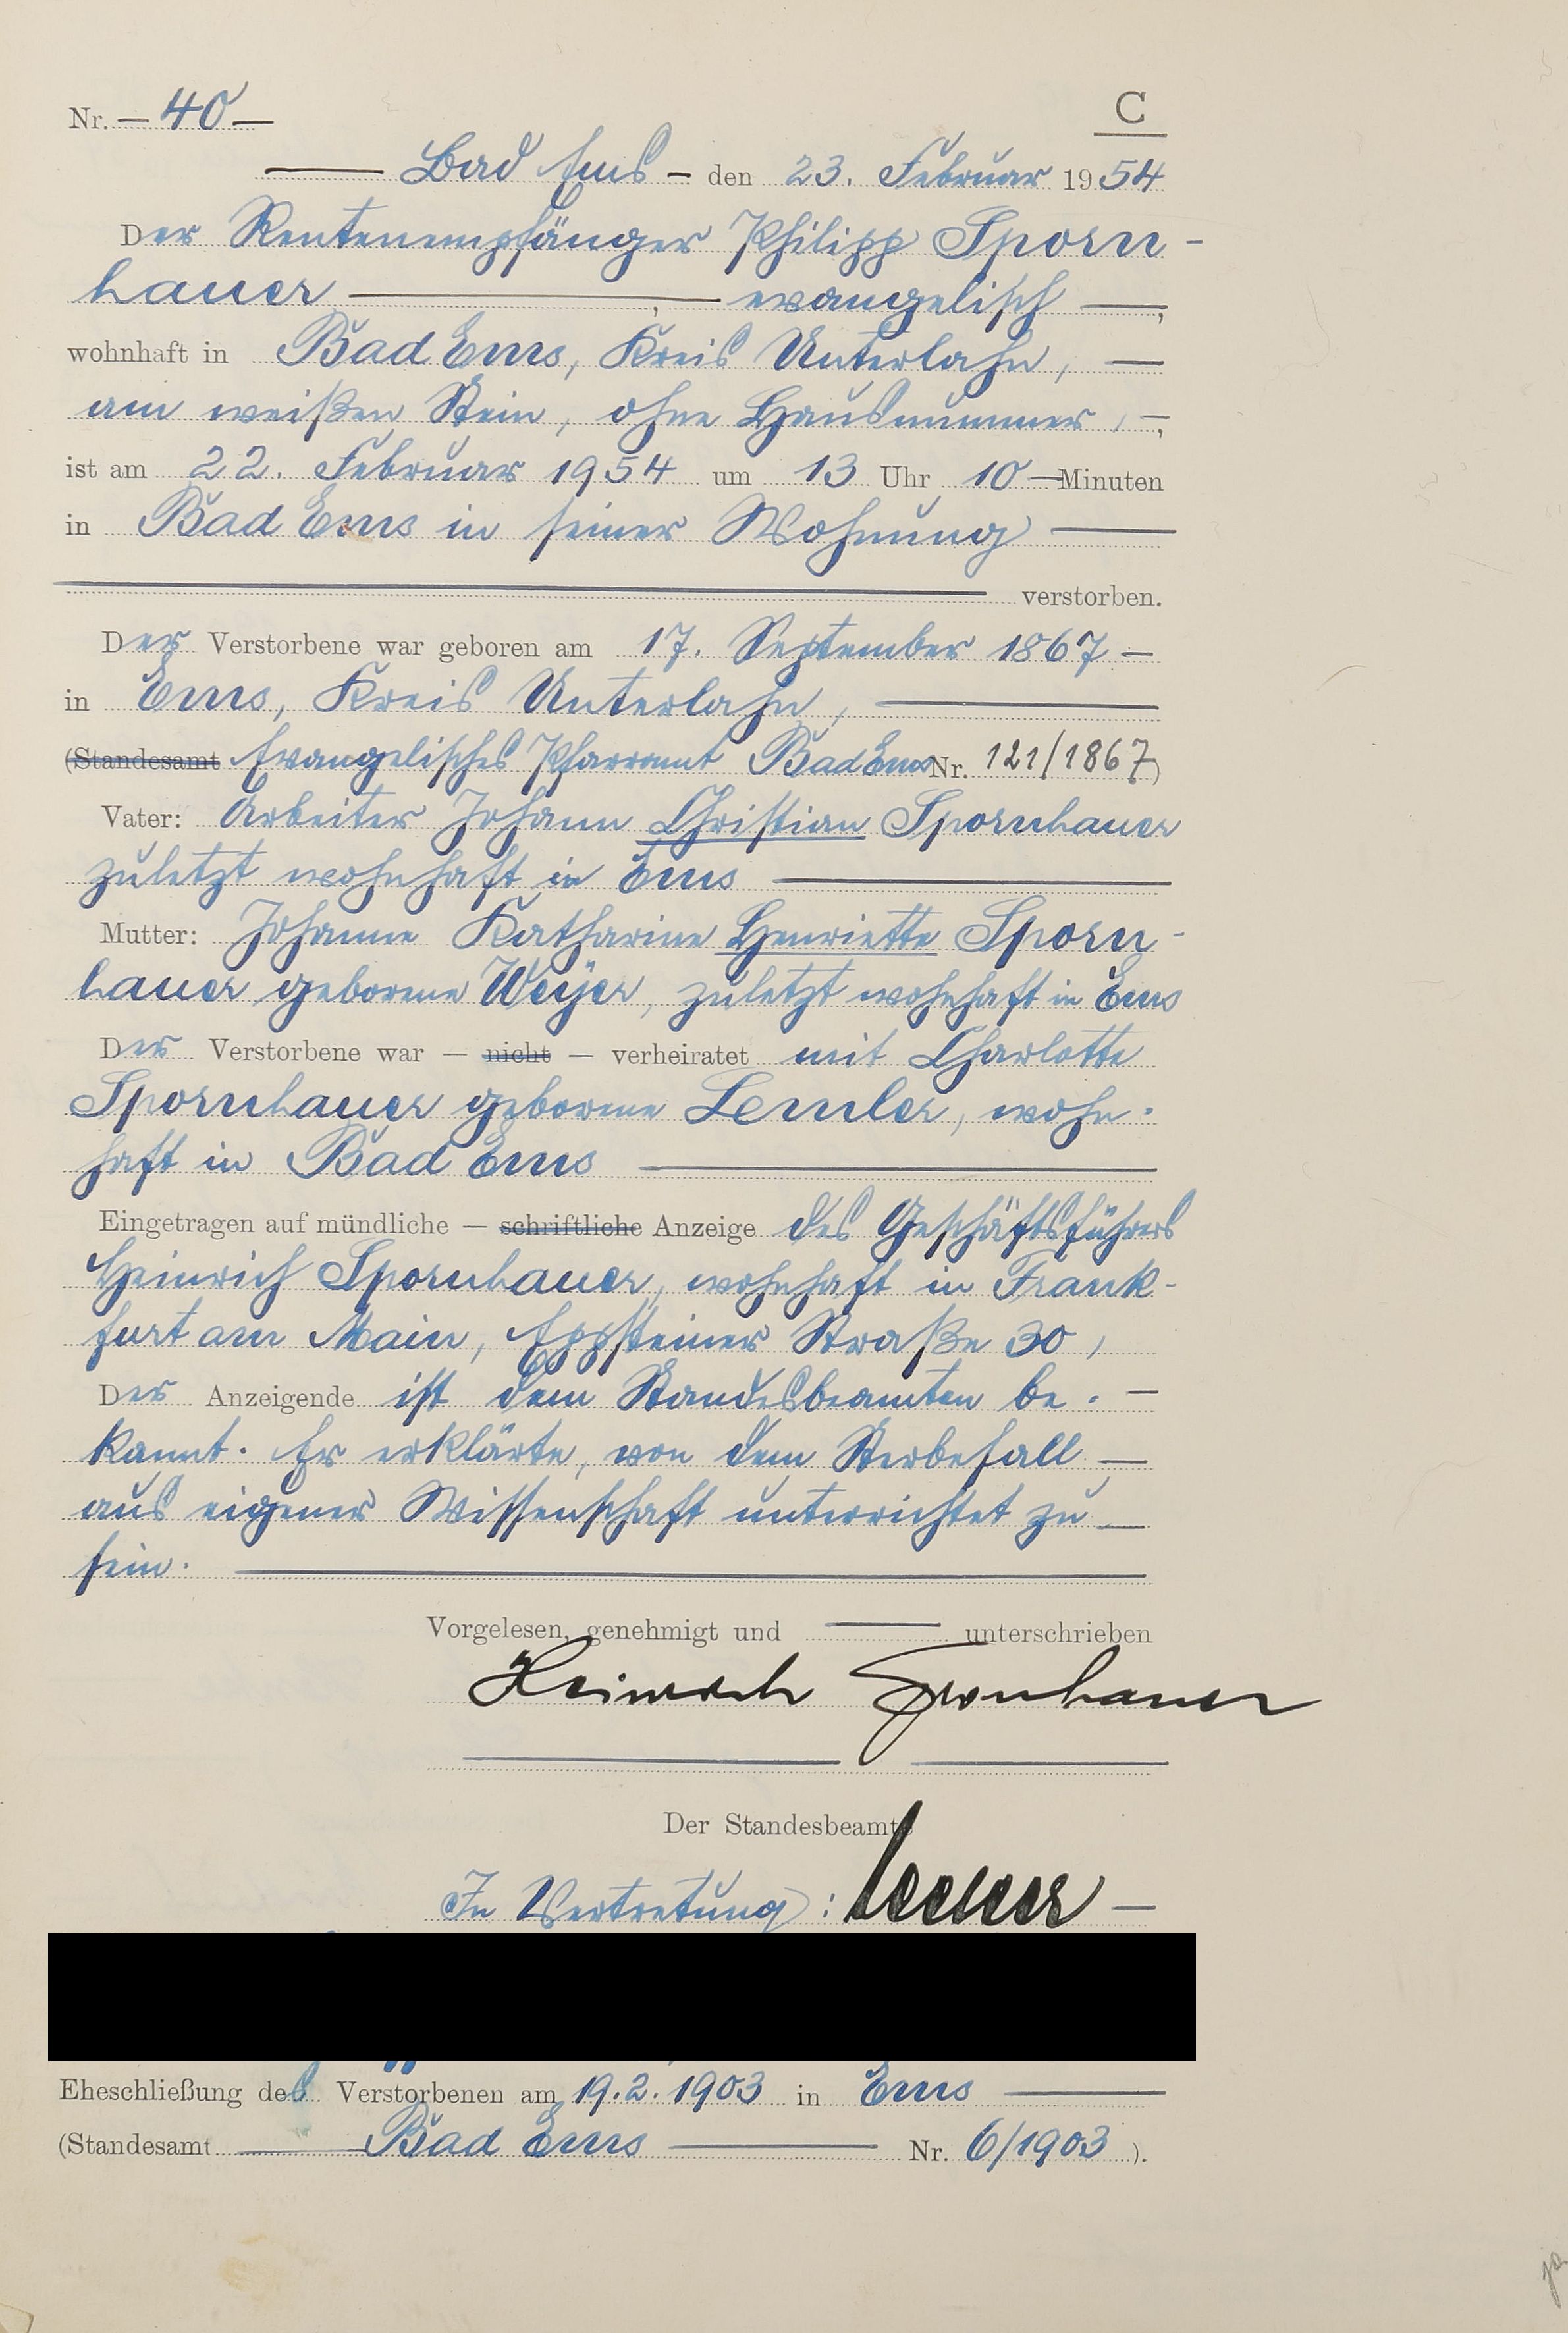 Nr. — 40 —
C
Bad Ems – den 23. Februar 1954
Der Rentenempfänger Philipp Sporn-
hauer —, — evangelisch —,
wohnhaft in Bad Ems, Kreis Unterlahn, —
am weißen Stein, ohne Hausnummer, —,
ist am 22. Februar 1954 um 13 Uhr 10 — Minuten
in Bad Ems in seiner Wohnung —
verstorben.
Der Verstorbene war geboren am 17. September 1867 —
in Ems, Kreis Unterlahn, —
(Standesamt Evangelisches Pfarramt Bad Ems Nr. 121/1867)
Vater: Arbeiter Johann Christian Spornhauer
zuletzt wohnhaft in Ems —
Mutter: Johanne Katharine Henriette Sporn-
hauer geborene Weyer, zuletzt wohnhaft in Ems
Der Verstorbene war — nicht — verheiratet mit Charlotte
Spornhauer geborene Lemler, wohn-
haft in Bad Ems —
Eingetragen auf mündliche — schriftliche Anzeige des Geschäftsführers
Heinrich Spornhauer, wohnhaft in Frank-
furt am Main, Eppsteiner Straße 30,
Der Anzeigende ist dem Standesbeamten be- —
kannt. Er erklärte, von dem Sterbefall —
aus eigener Wissenschaft unterrichtet zu —
sein. —
Vorgelesen, genehmigt und — unterschrieben
Heinrich Spornhauer
Der Standesbeamte
In Vertretung: —
Eheschließung des Verstorbenen am 19.2.1903 in Ems —
(Standesamt — Bad Ems — Nr. 6/1903).